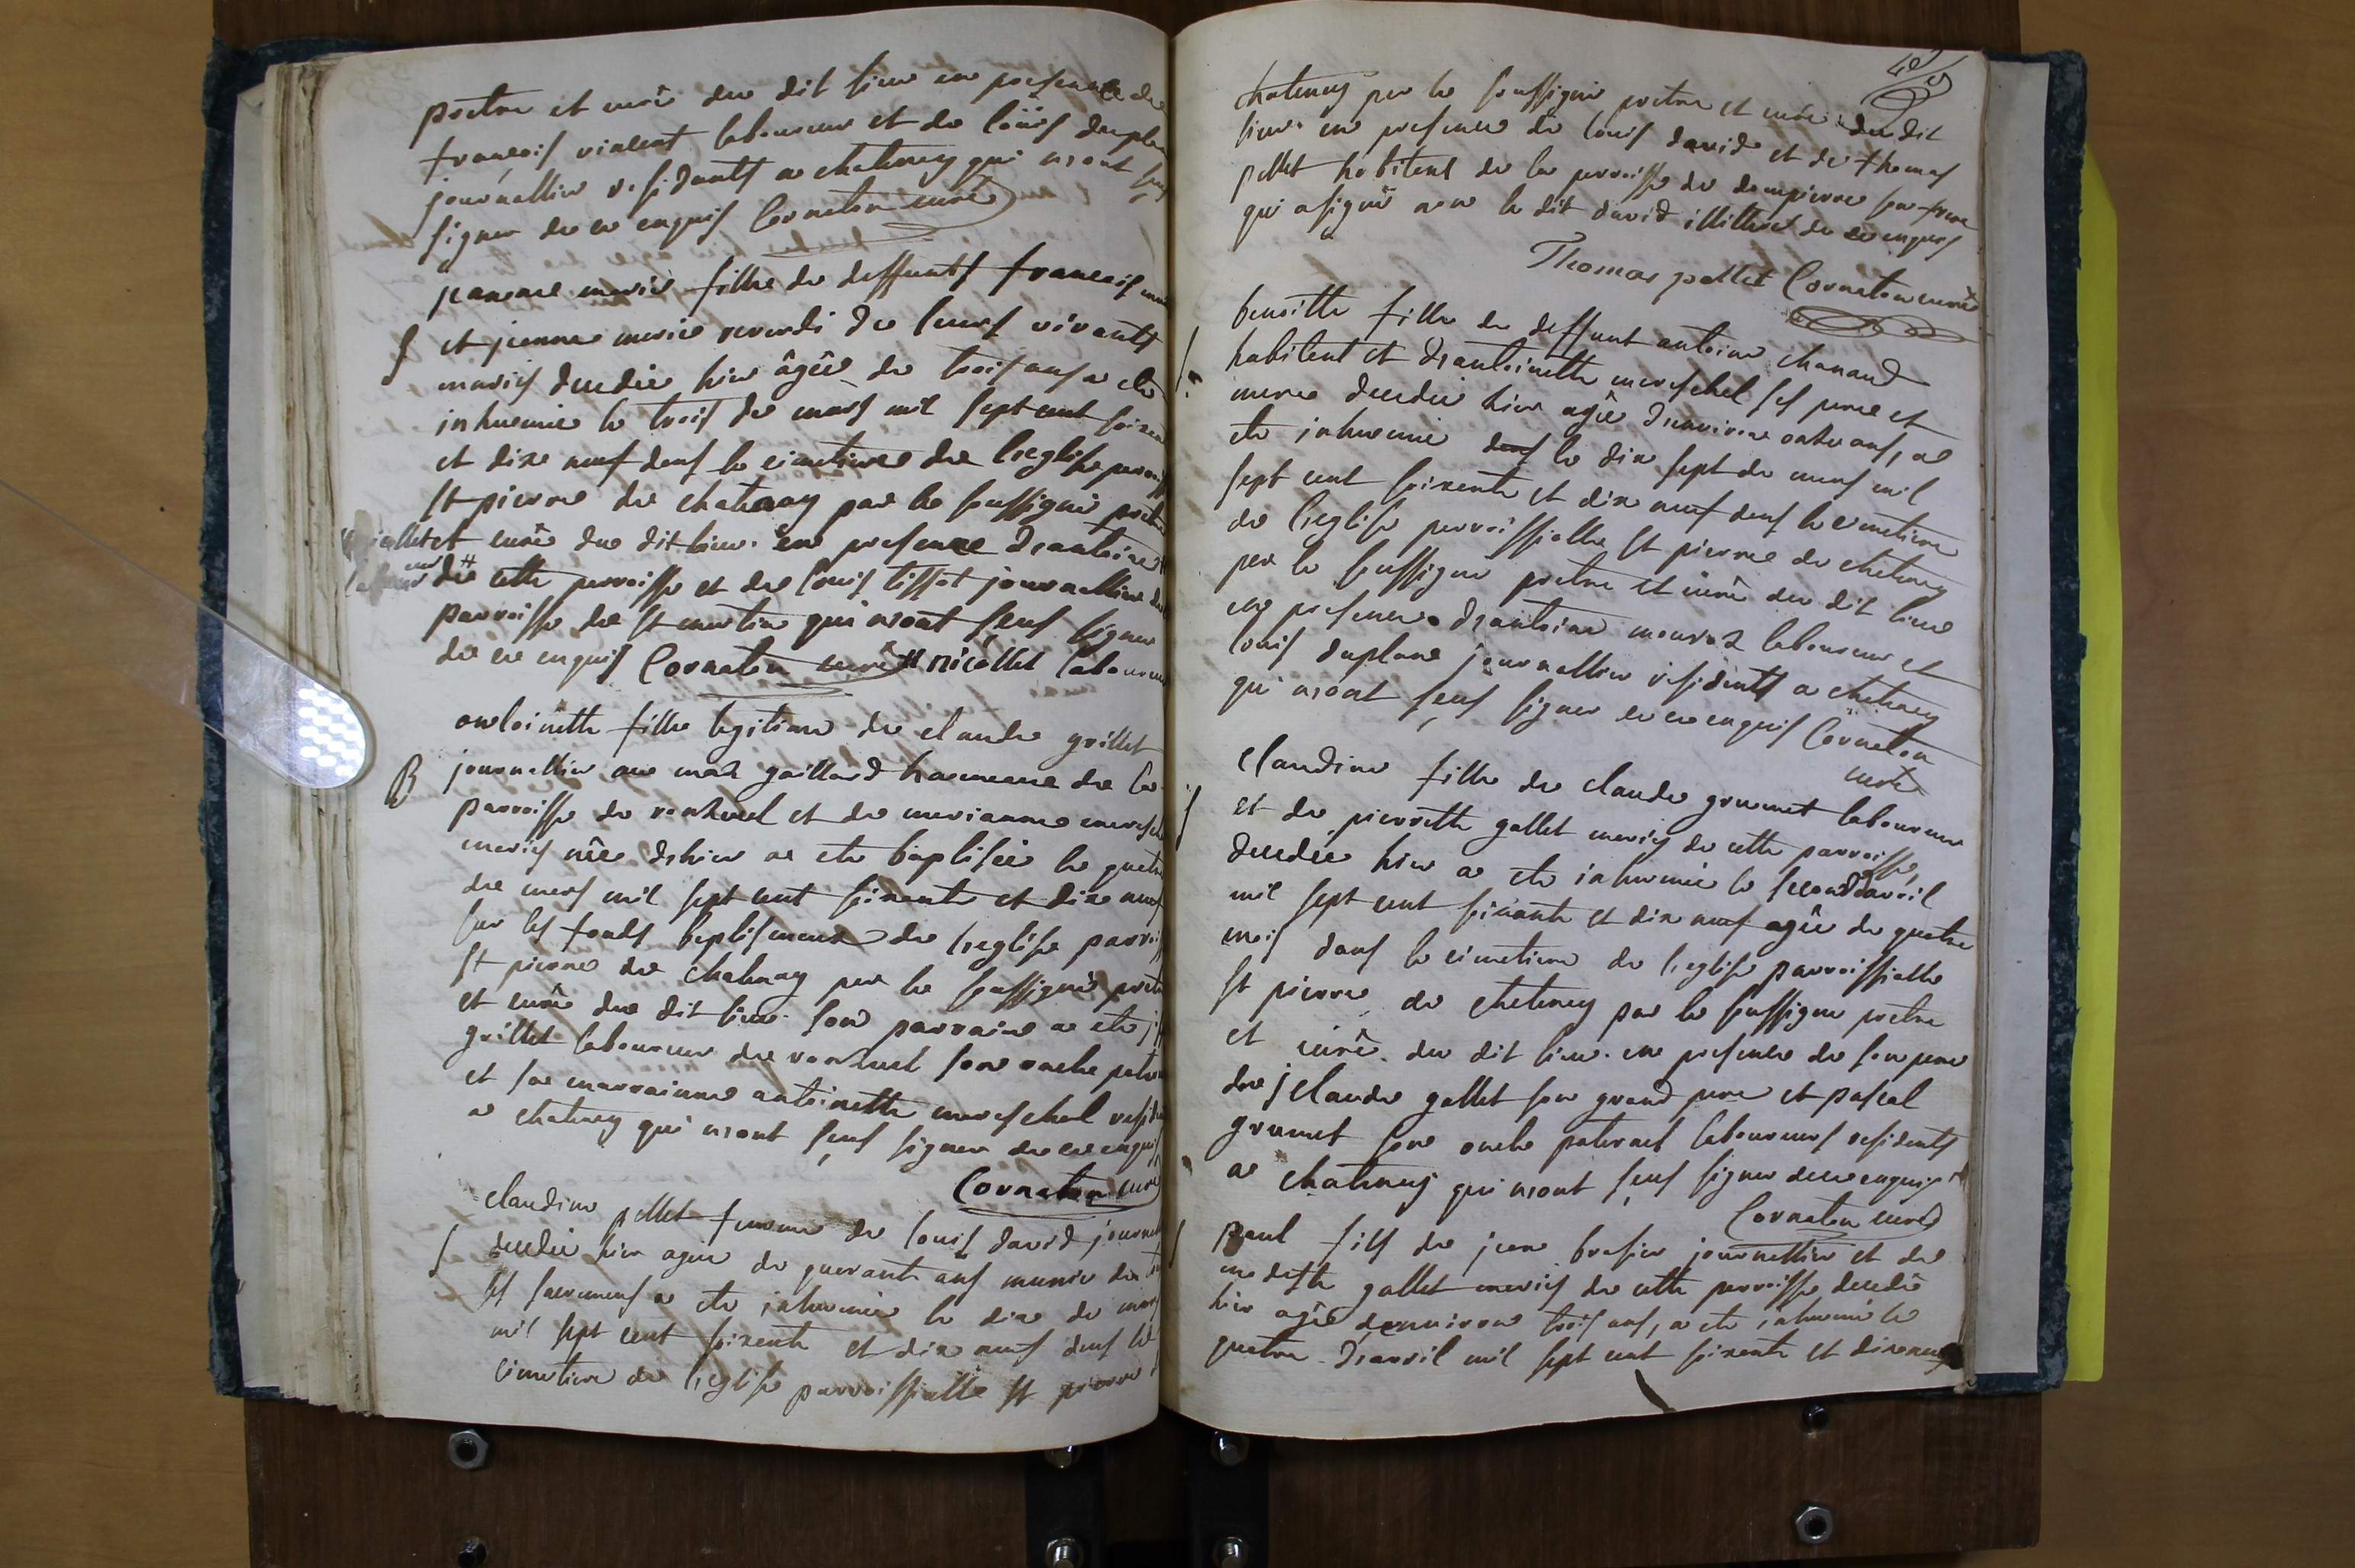 pretre et curé du dit lieu en presence de
françois vincent laboureur et de loüis duplan
journallier residants a chatenay qui n'ont sçeu
signer de ce enquis Cornaton curé
jeanne marie fille de deffunts francois
et jeanne marie reverdi de leurs vivants
mariés decedée hier âgée de trois ans a ete
inhumée le trois de mars mil sept cent soixante
et dix neuf dans le cimetiere de l'eglise parroiss
St pierre de chatenay par le soussigné pretre
et curé du dit lieu en presence d'antoine #
de cette parroisse et de loüis tissot journallier de
parroisse de St martin qui n'ont sçeu signer
de ce enquis Cornaton curé # nicollet laboureur
antoinette fille legitime de claude grillet
B journallier au mas gaillard hameau de la
parroisse de ronzuel et de marianne mareschal
mariés née d'hier a ete baptisée le quatre
de mars mil sept cent soixante et dix neuf
sur les fonds baptismaux de l'eglise parroiss
St pierre de chatenay par le soussigné pretre
et curé du dit lieu son parrain a ete
grillet laboureur de ronzuel son oncle paternel
et sa marrainne antoinette mareschal resid
a chatenay qui n'ont sçeu signer de ce enquis
Cornaton curé
claudine pellet femme de louis david journal
S decedée hier agée de quarante ans munie de
les sacremens a ete inhumée le dix de mars
mil sept cent soixante et dix neuf dans le
cimetiere de l'eglise parroissialle St pierre
chatenay par le soussigné pretre et curé du dit
lieu en presence de louis david et de thomas
pellet habitant de la parroisse de dompierre son frere
qui a signé non le dit david illitteré de ce enquis
Thomas pellet Cornaton curé
benoitte fille de deffunt antoine chanand
habitant et d'antoinette mareschal ses pere et
mere decedée hier agée d'environ onze ans, a
ete inhumée le dix sept de mars mil
sept cent soixante et dix neuf dans le cimetiere
de l'eglise parroissialle St pierre de chatenay
par le soussigné pretre et curé du dit lieu
en presence d'antoine laboureur et
louis duplan journallier residants a chatenay
qui n'ont sçeu signer de ce enquis Cornaton
curé
Claudine fille de claude grumet laboureur
et de pierrette gallet mariés de cette parroisse,
decedée hier a ete inhumée le second d'avril
mil sept cent soixante et dix neuf agée de quatre
mois dans le cimetiere de l'eglise parroissialle
St pierre de chatenay par le soussigné pretre
et curé du dit lieu en presence de son pere
de claude gallet son grand pere et pascal
grumet son oncle paternel laboureurs residants
a chatenay qui n'ont sçeu signer de ce enquis
Cornaton curé
paul fils de jean brasier journallier et de
modeste gallet mariés de cette parroisse, decedé
hier agé d'environ trois ans, a ete inhumé le
quatre d'avril mil sept cent soixante et dix neuf